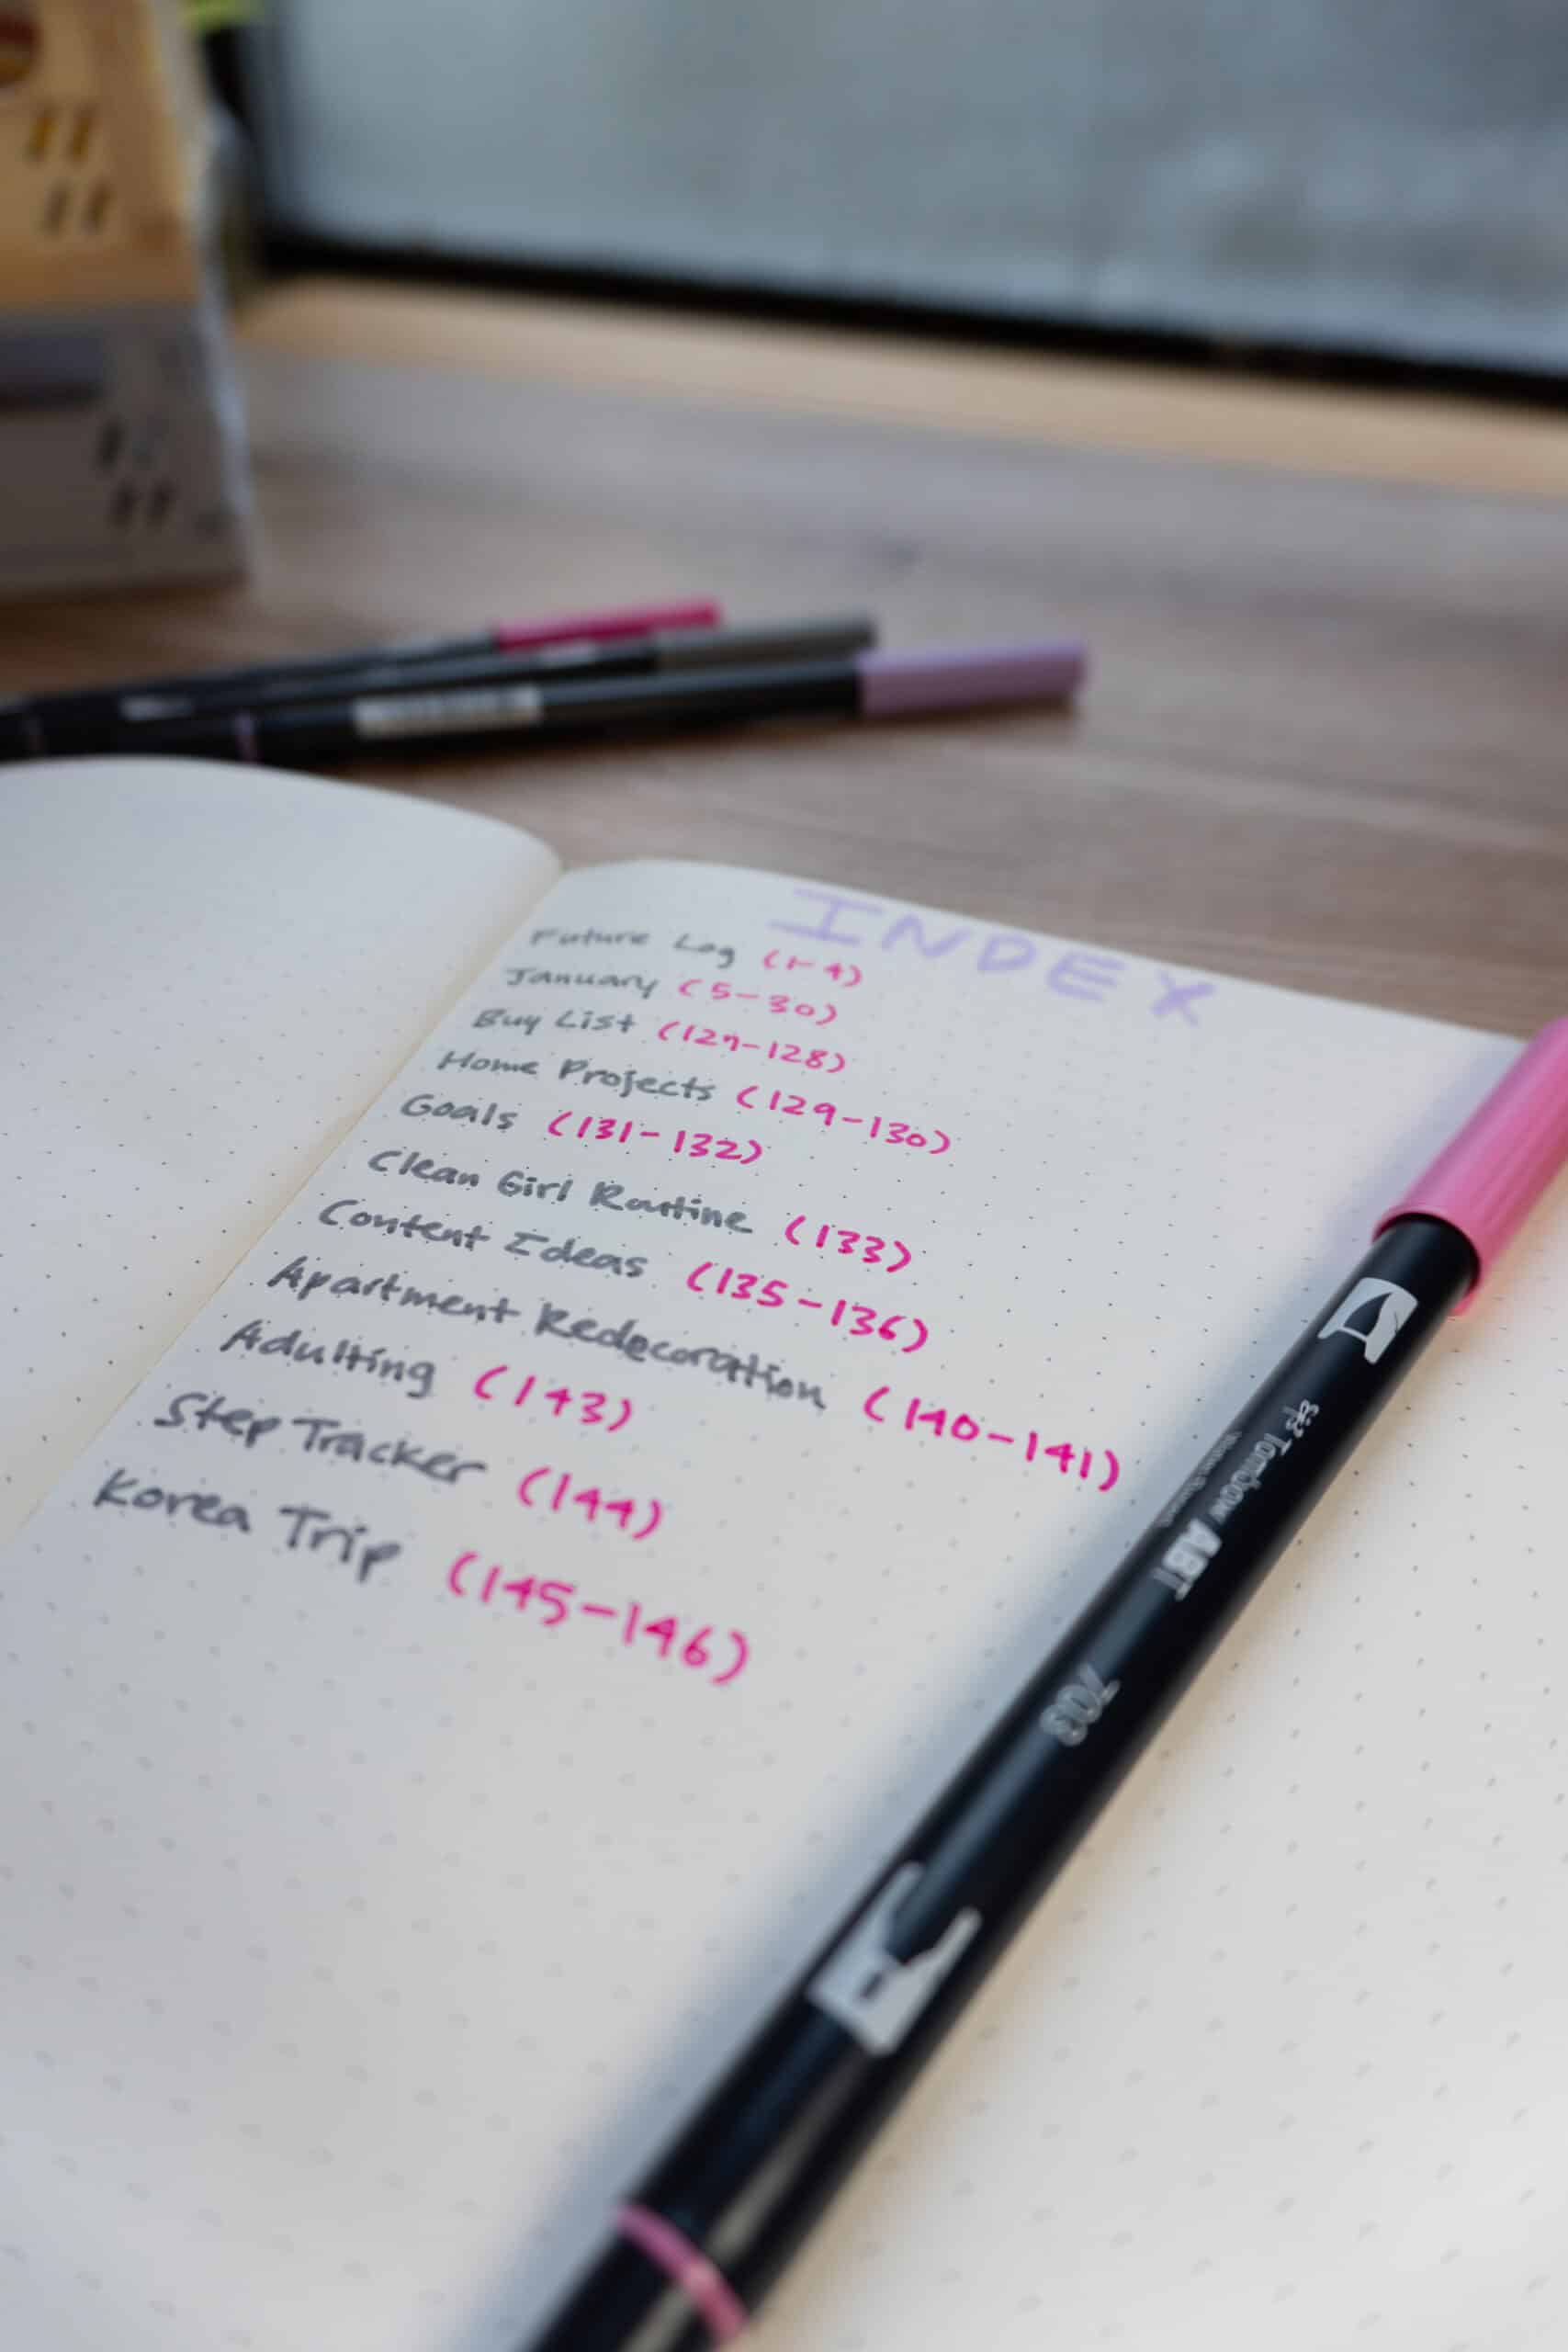 INDEX
Future Log (1-4)
January (5-30)
Buy List (127-128)
Home Projects (129-130)
Goals (131-132)
Clean Girl Routine (133)
Content Ideas (135-136)
Apartment Redecoration (140-141)
Adulting (143)
Step Tracker (144)
Korea Trip (145-146)
Tombow ABT
703